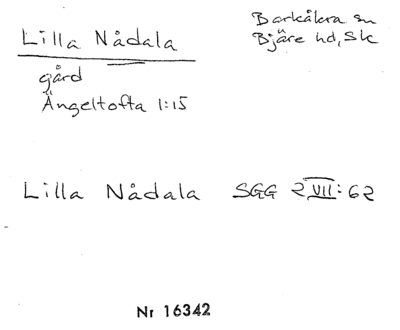 Lilla Nådala
Barkåkra sn
Bjäre hd, Sk
gård
Ängeltofta 1:15
Lilla Nådala SGG 2 VII: 62
Nr 16342